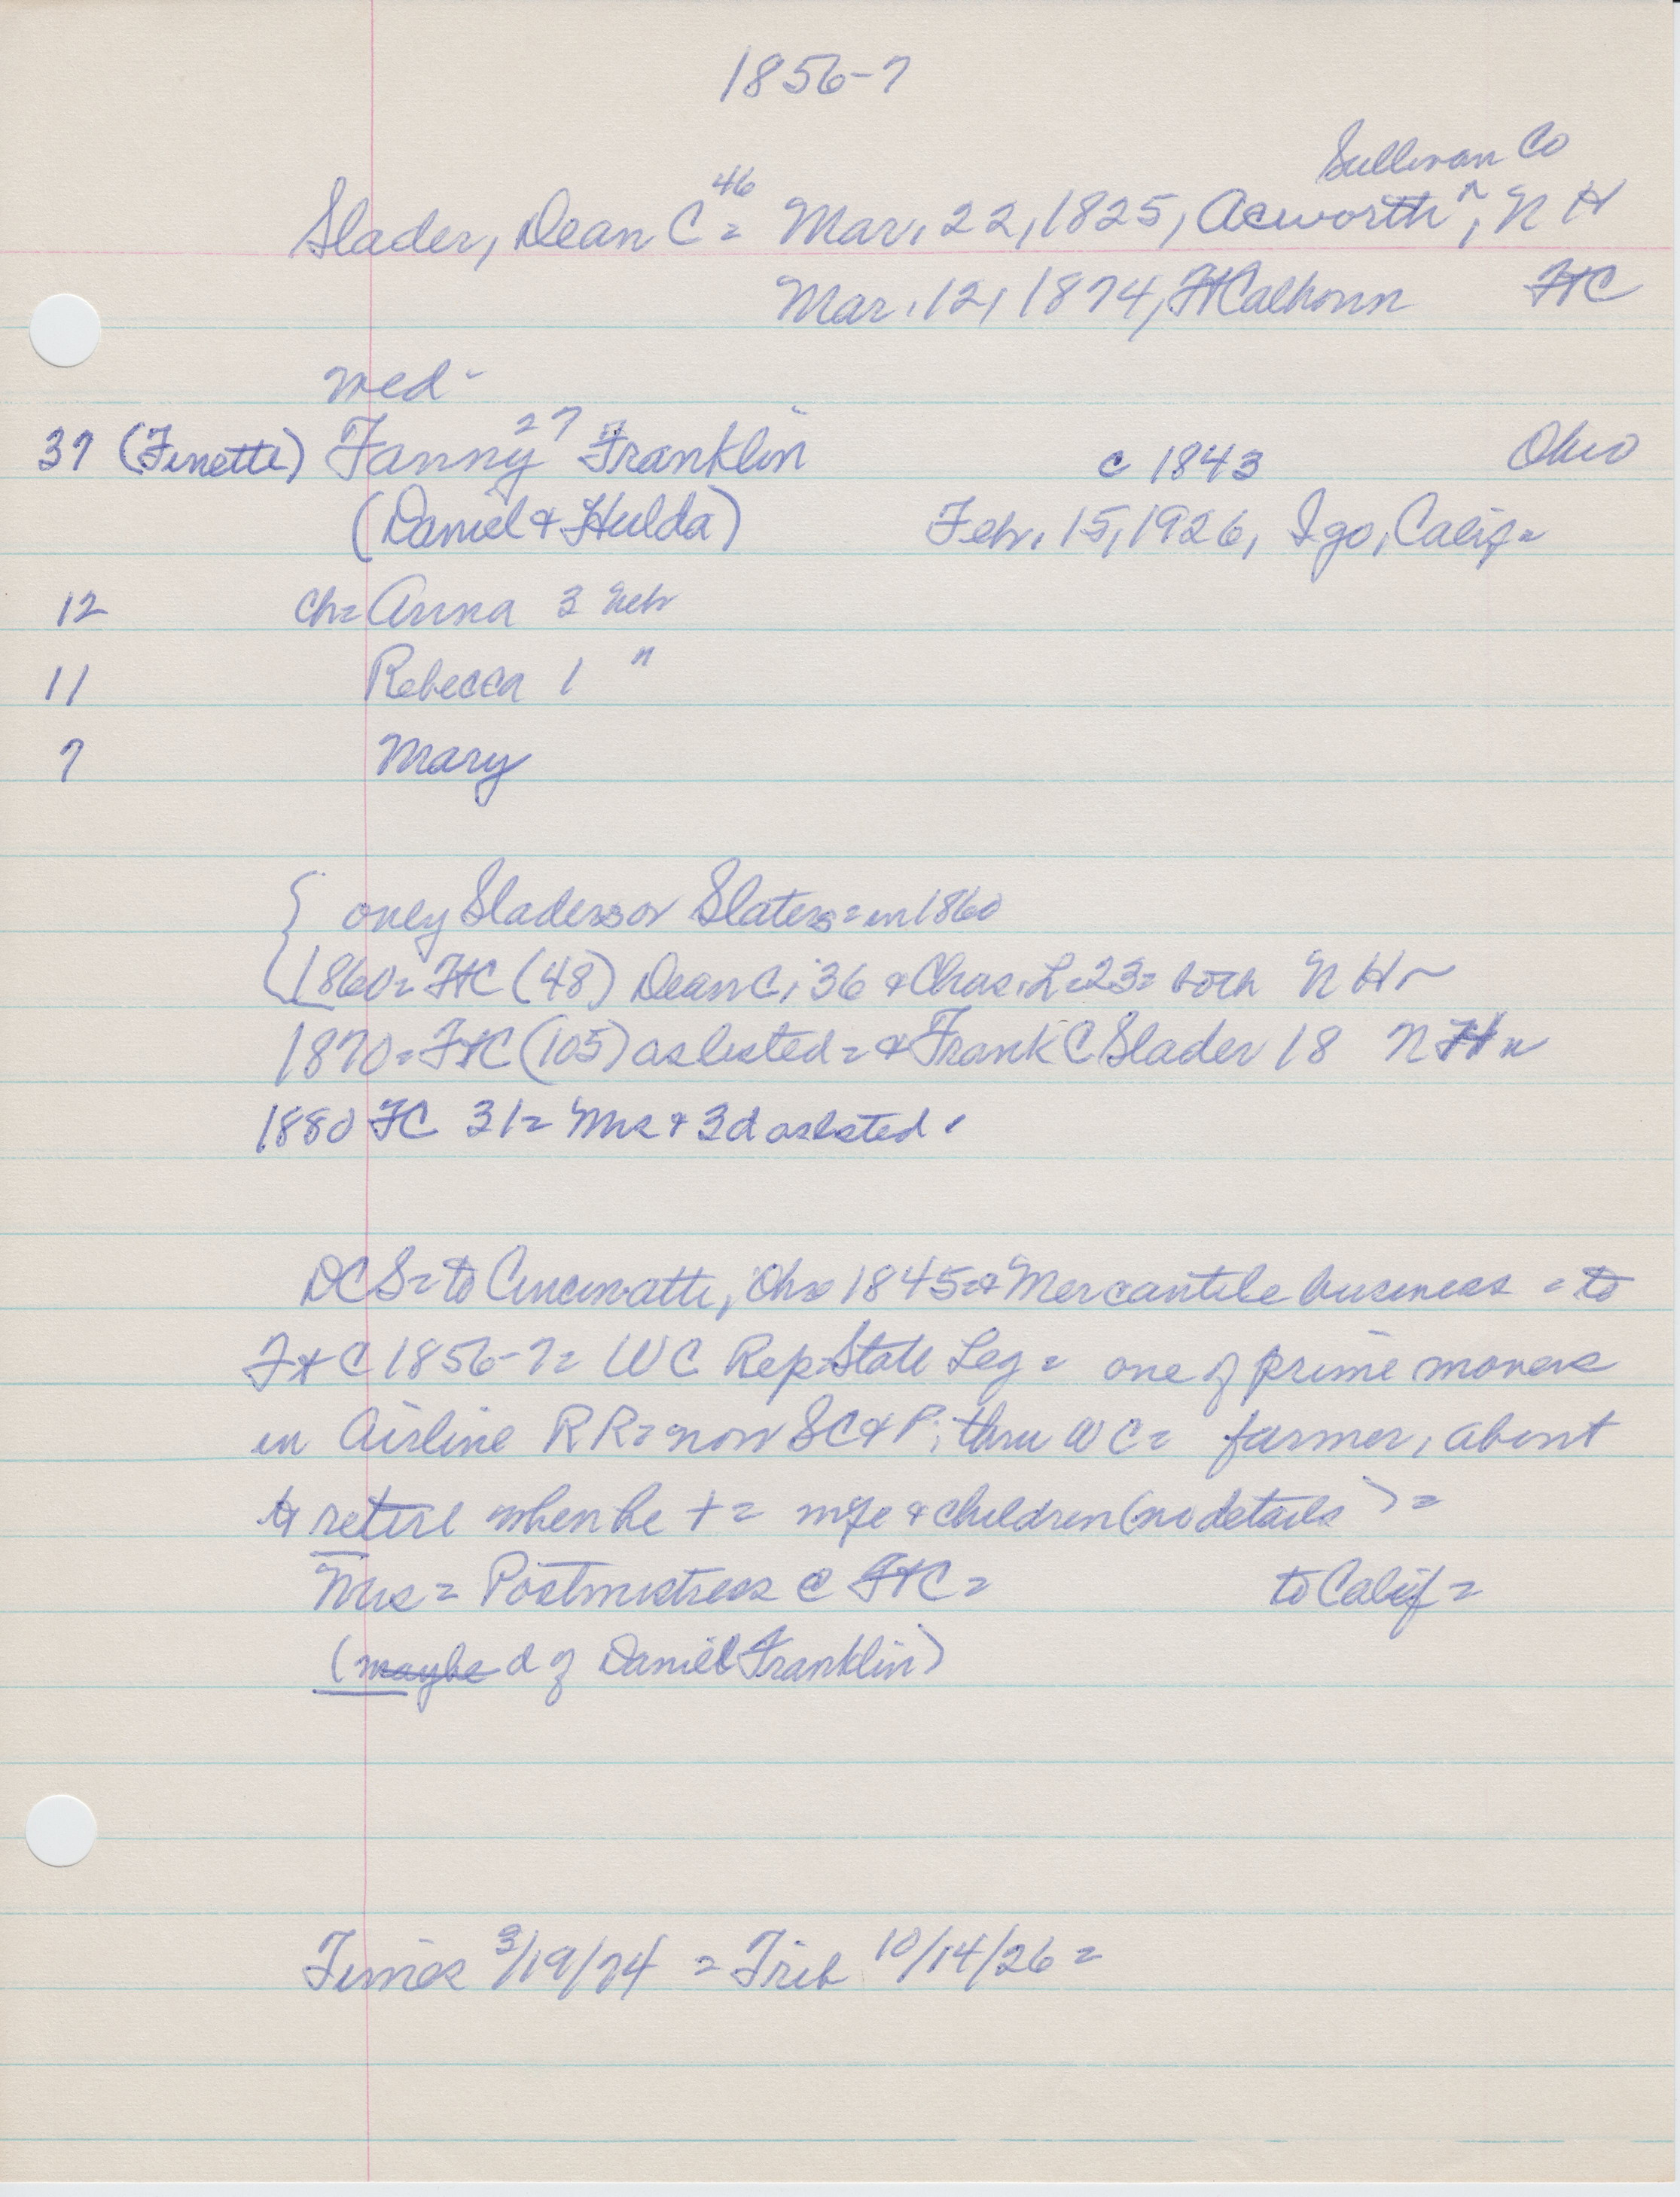 1856-7
Sullivan Co
Slader, Dean C 46 = Mar. 22, 1825, Acworth ^, N H
Mar. 12, 1874, Ft Calhoun Ft C
med -
37 (Finette) Fanny 27 Franklin c 1843 Ohio
(Daniel & Hulda) Febr. 15, 1926, Igo, Calif =
12 ch = Anna 3 Nebr
11 Rebecca 1 "
7 Mary
only Sladers or Slaters = in 1860
1860 = Ft C (48) Dean C, 36 & Chas. L = 23 = both N H -
1870 = Ft C (105) as listed = & Frank C Slader 18 N H
1880 FC 31 = Mrs & 3 d as listed.
DCS = to Cincinatti, Oh = 1845 = & Mercantile business = to
Ft C 1856-7 = WC Rep State Leg = one of prime movers
in Airline RR = now SC & P, thru WC = farmer, about
to retire when he + = wife & children (no details) =
Mrs = Postmistress @ Ft C = to Calif =
(maybe d of Daniel Franklin)
Times 3/19/74 = Trib 10/14/26 =